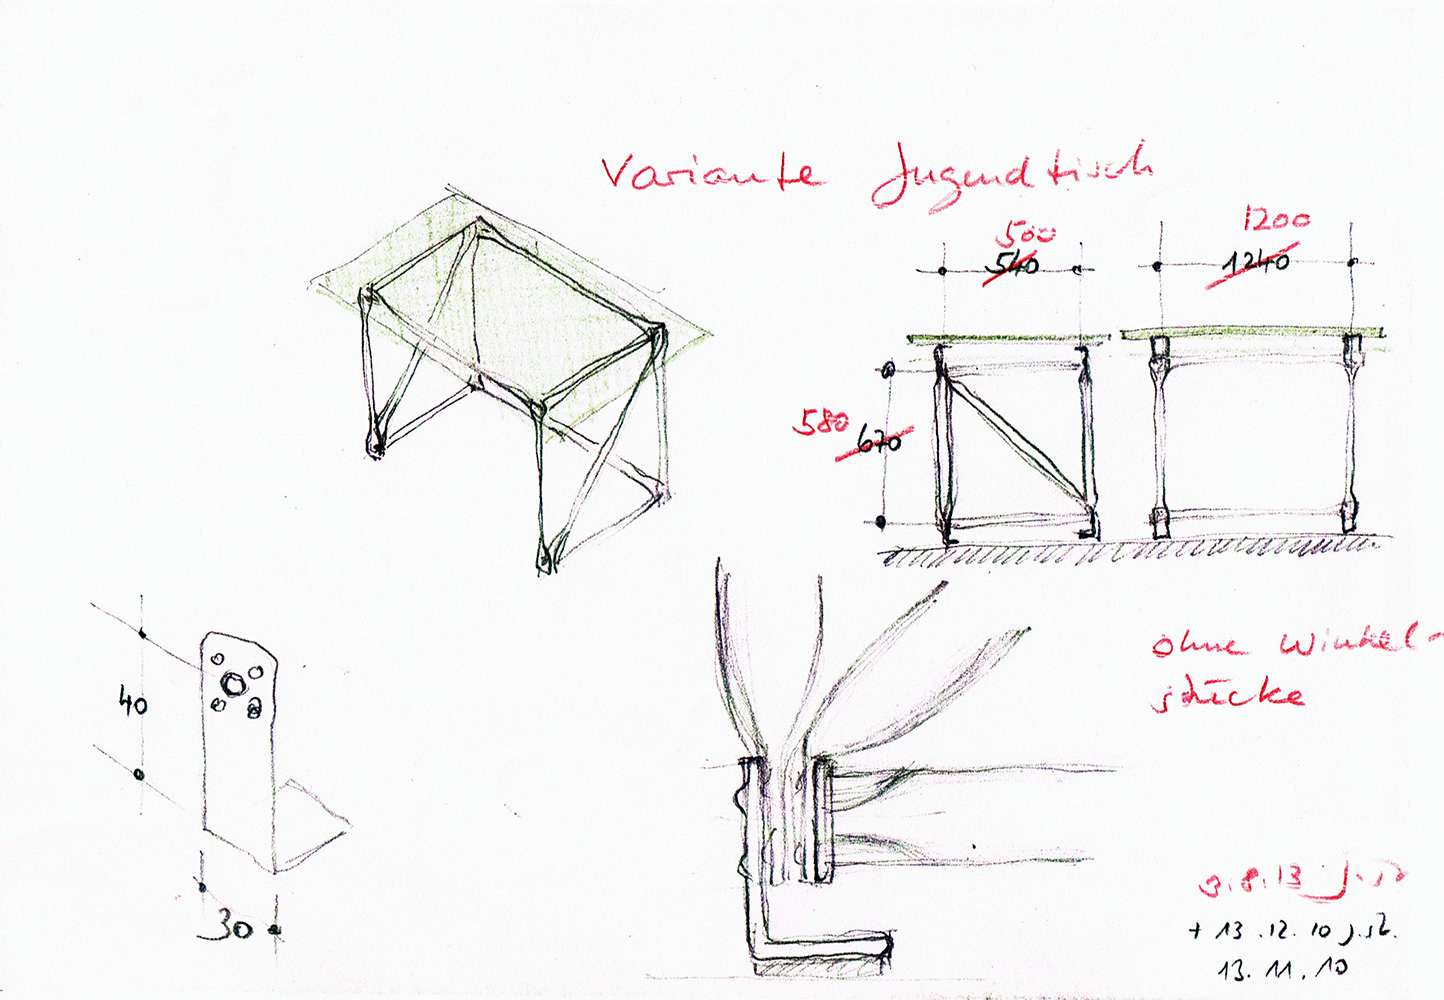 Variante Jugendtisch
500
540
1200
1240
580
670
40
30
ohne Winkel-
stücke
9.8.13
+ 13.12.10 j.st.
13.11.10